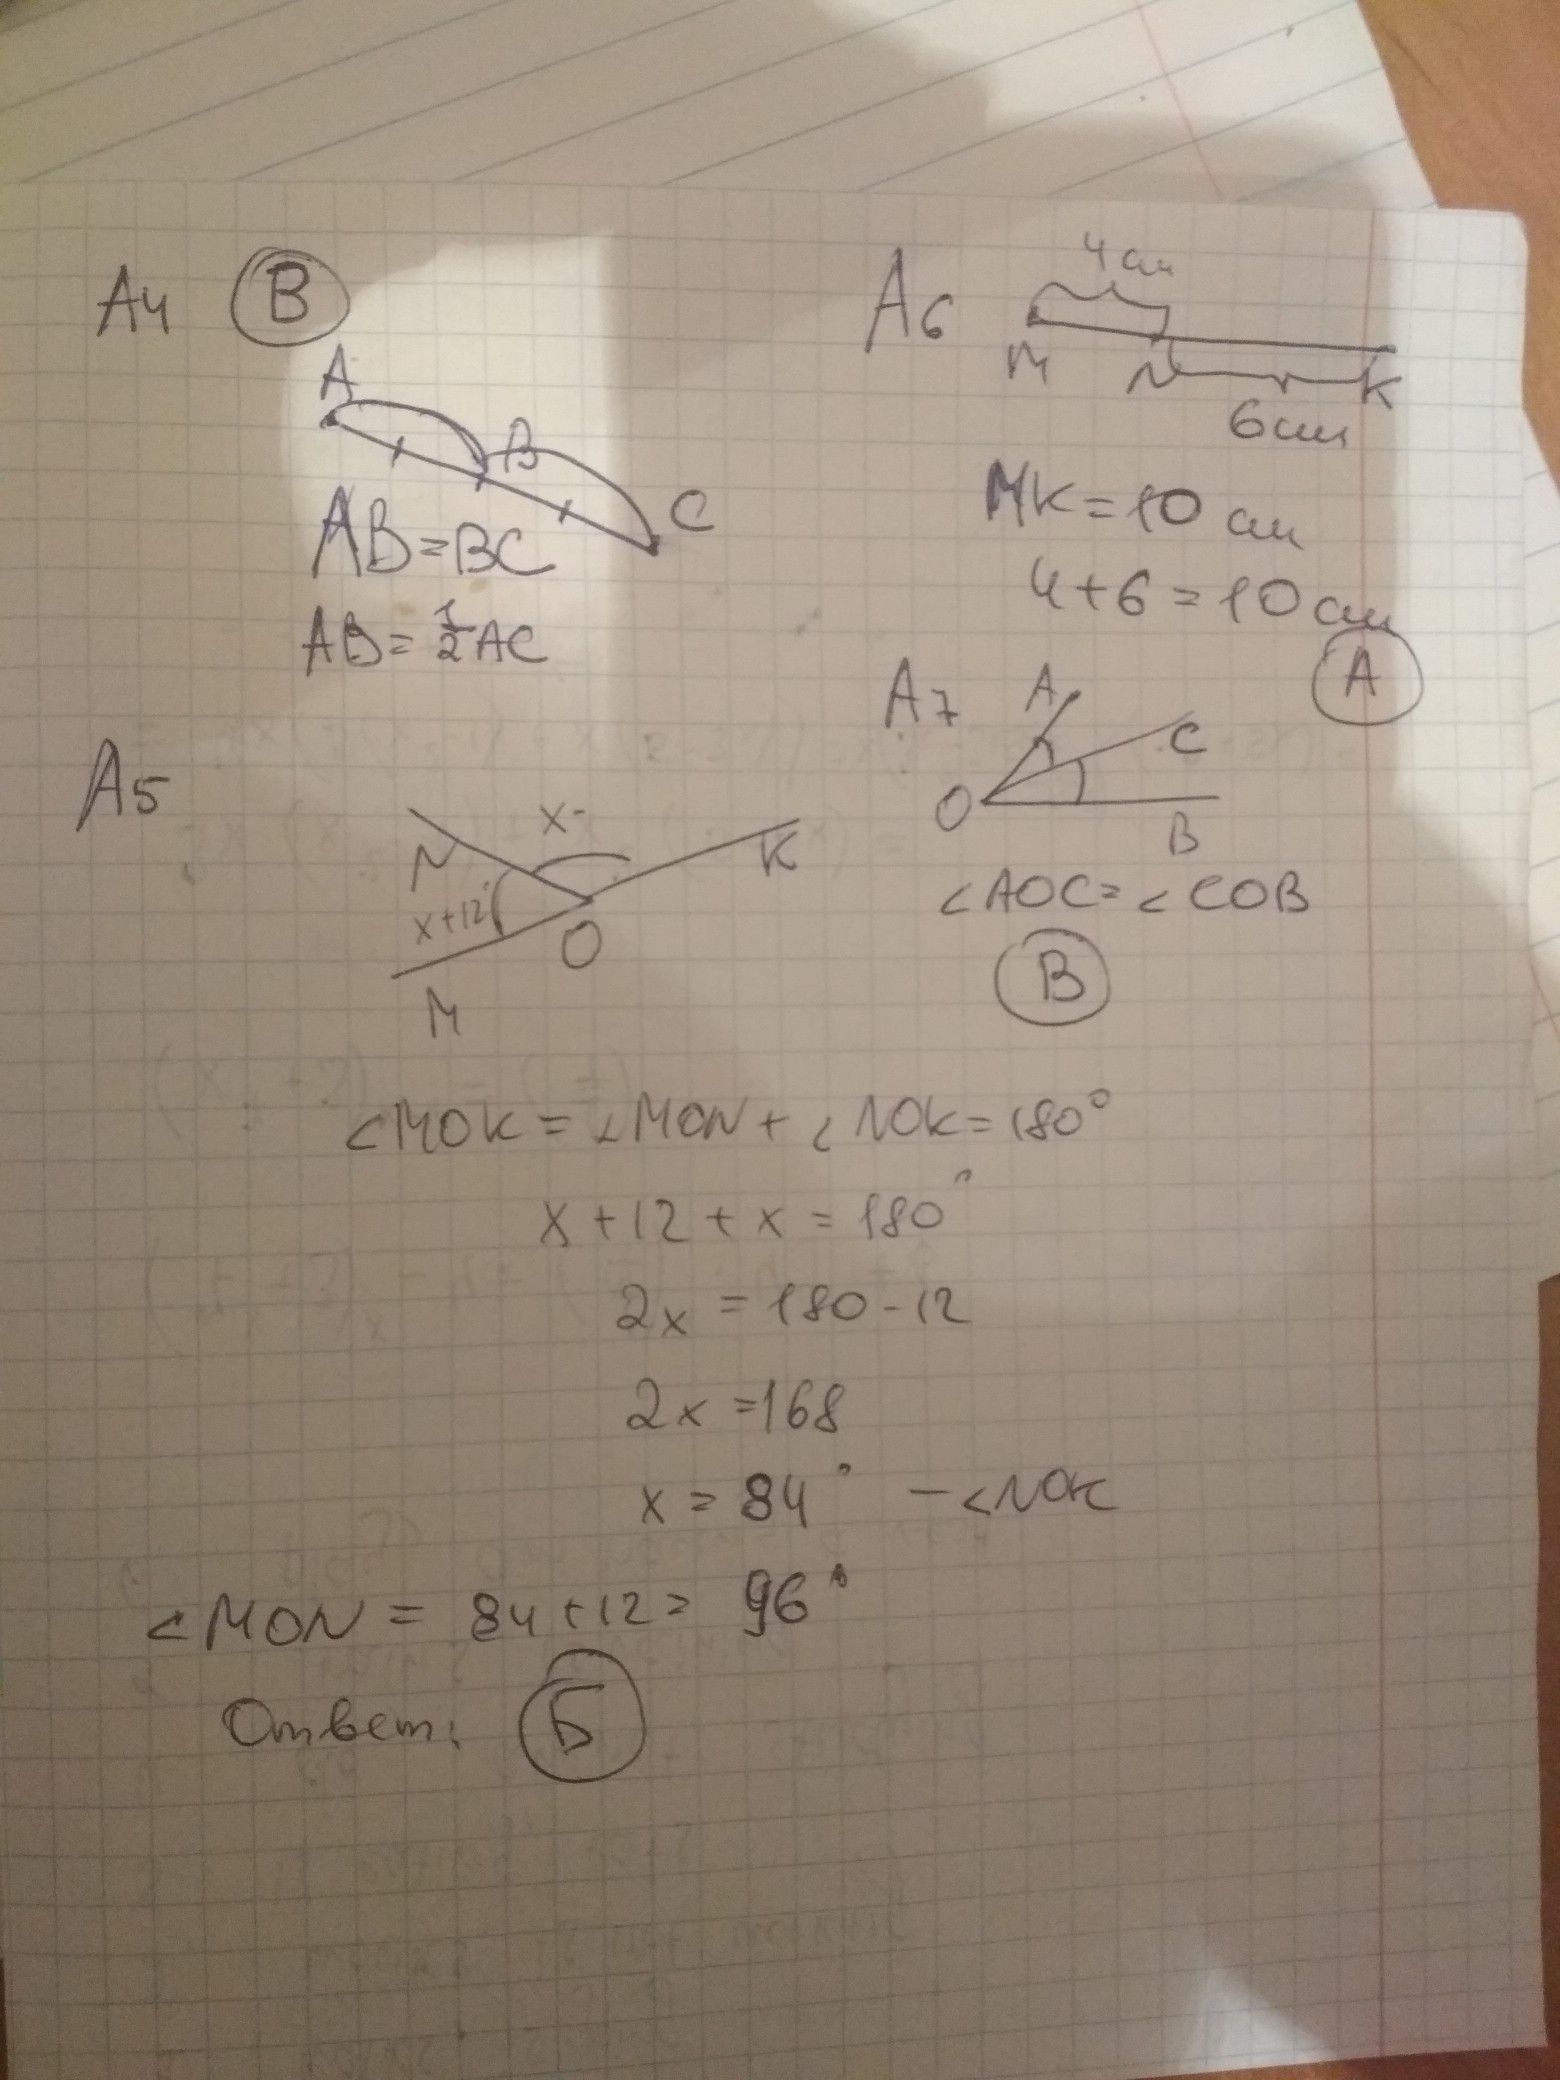 А4 В
A
B
C
AB=BC
AB=½AC
А6 4 см
M N K
6 см
MK=10 см
4+6=10 см
А
А7 A
C
O
B
∠AOC=∠COB
В
А5
x-
N K
x+12°
O
M
∠MOK=∠MON+∠NOK=180°
x+12+x=180°
2x=180-12
2x=168
x=84° -∠NOK
∠MON=84+12=96°
Ответ: Б